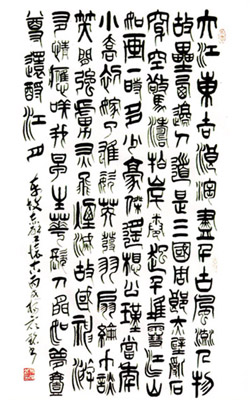 大江東去浪淘盡千古風流人物
故壘西邊人道是三國周郎赤壁亂石
穿空驚濤拍岸卷起千堆雪江山
如畫一時多少豪傑遙想公瑾當年
小喬初嫁了雄姿英發羽扇綸巾談
笑間強虜灰飛煙滅故國神游
多情應笑我早生華髮人間如夢壹
尊還酹江月